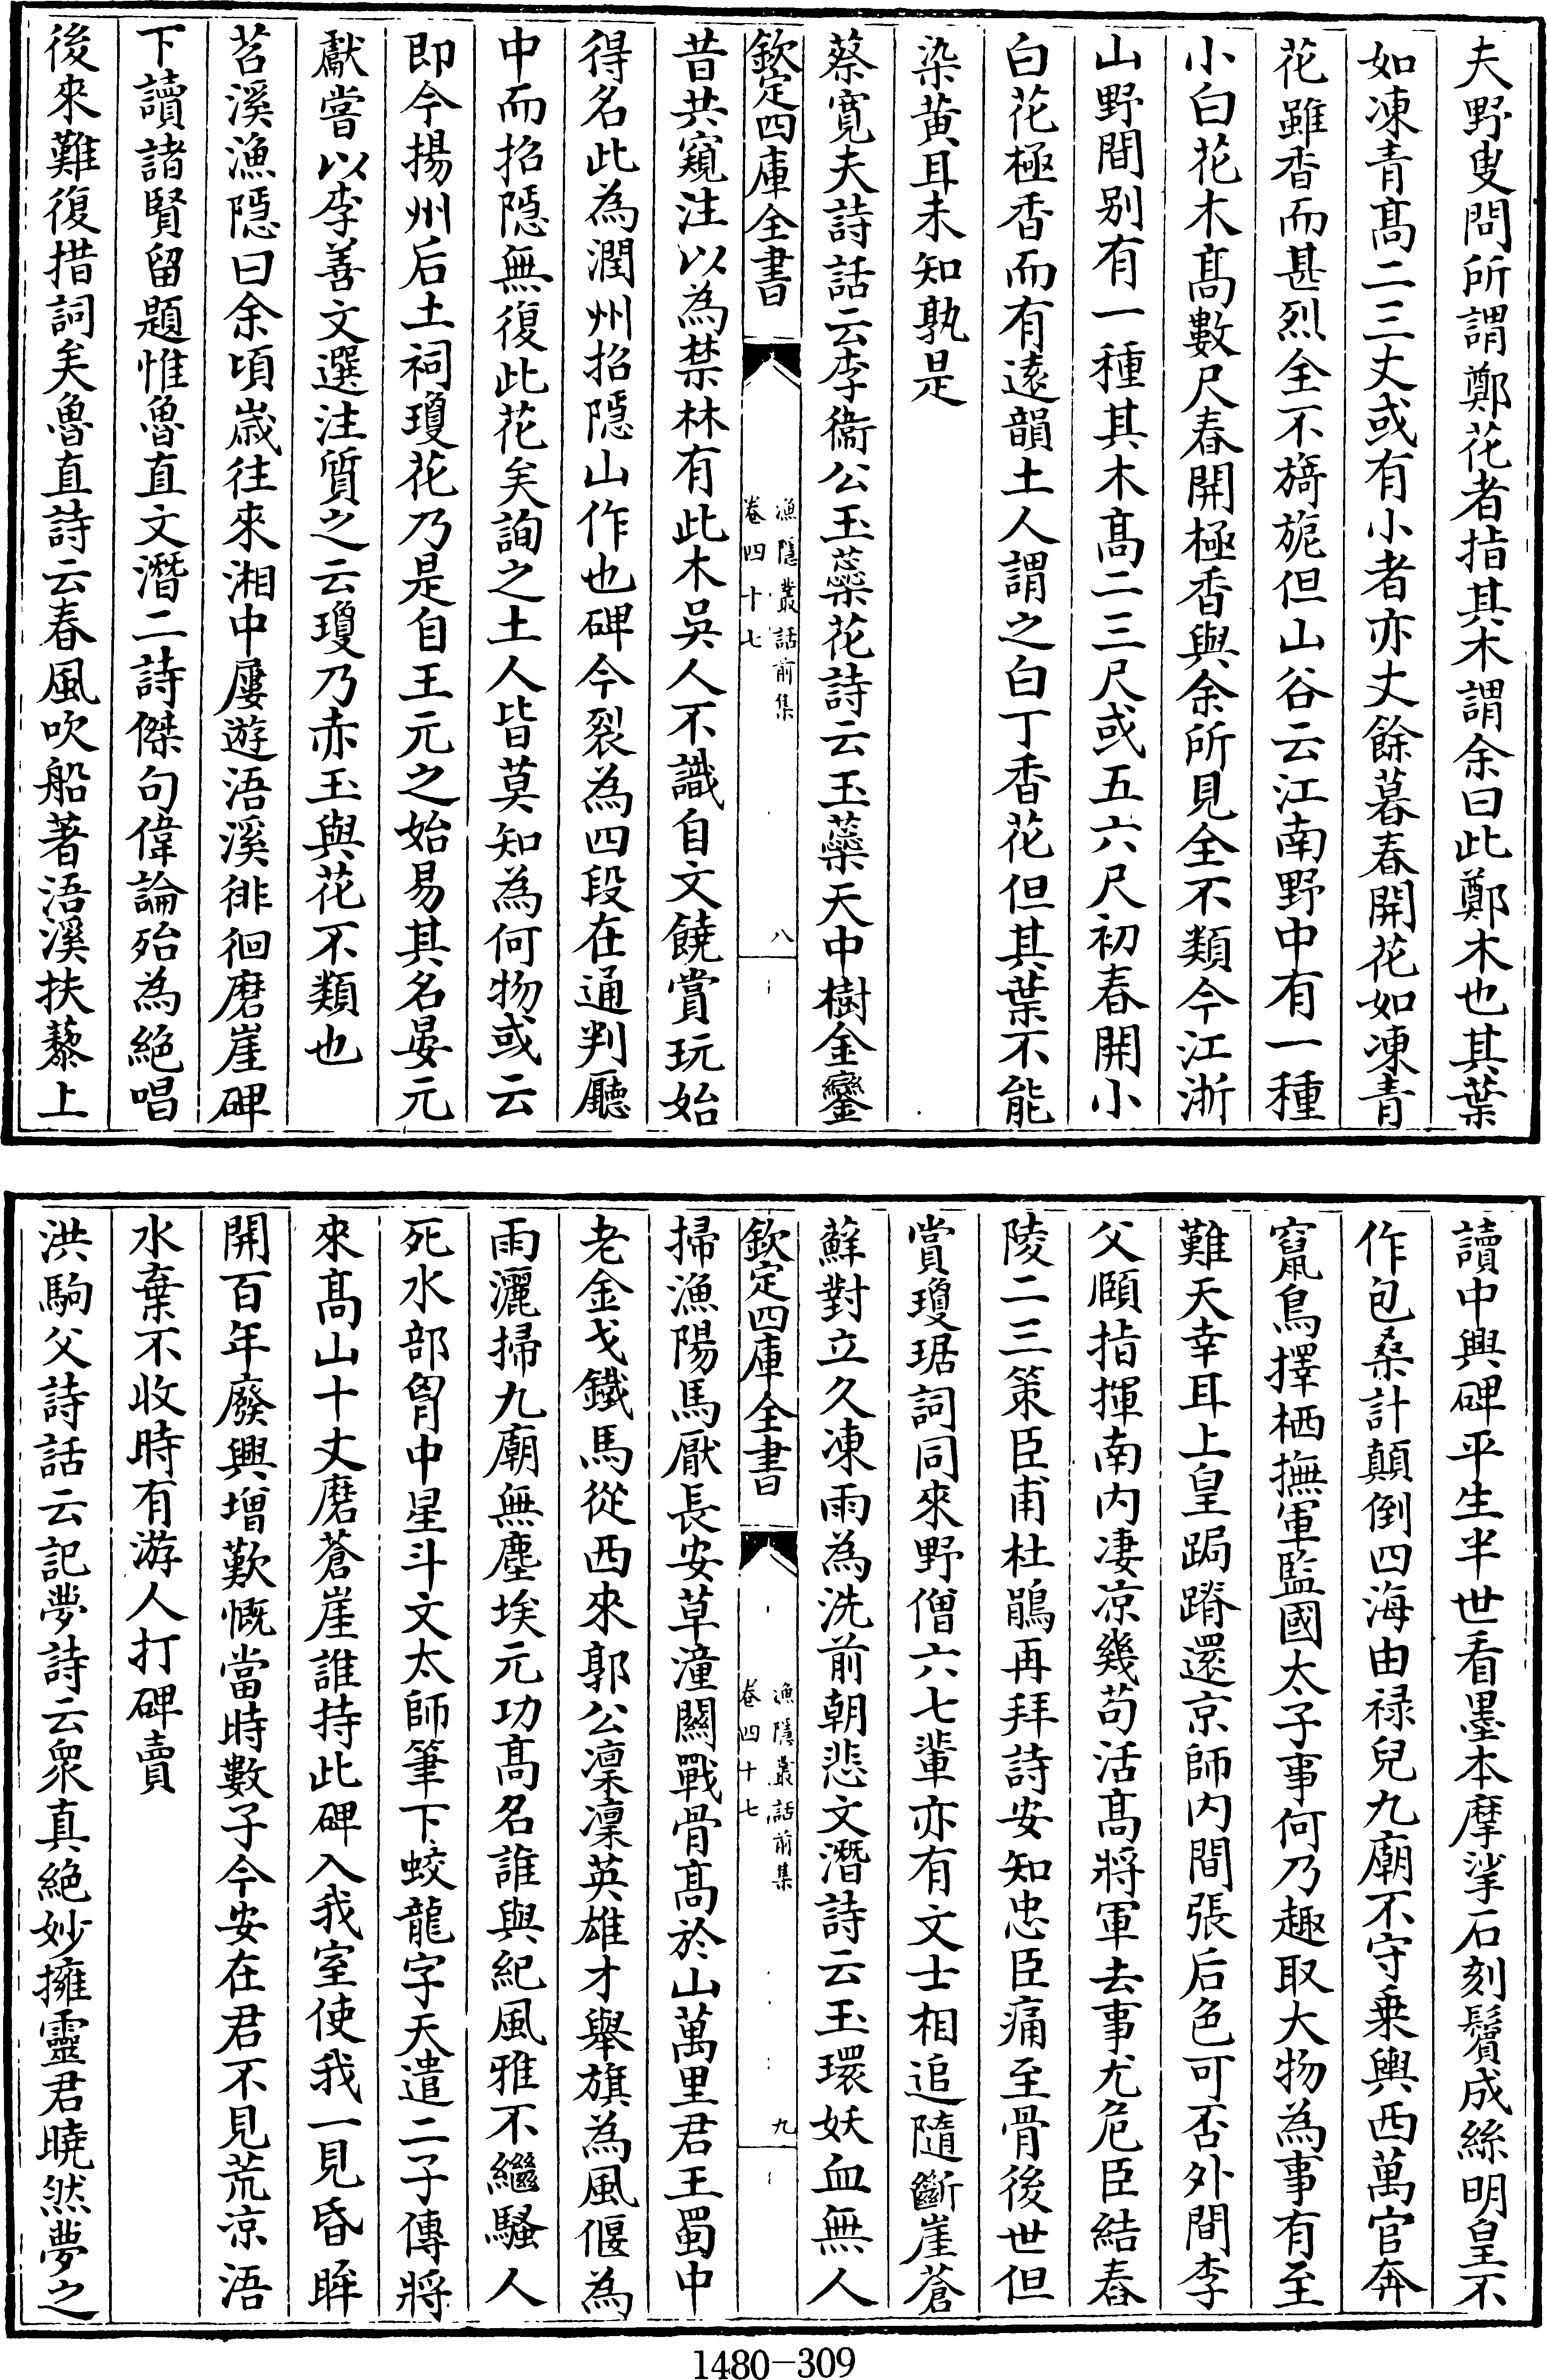 夫野叟問所謂鄭花者指其木謂余曰此鄭木也其葉
如凍青髙二三丈或有小者亦丈餘暮春開花如凍青
花雖香而甚烈全不旖旎但山谷云江南野中有一種
小白花木髙數尺春開極香與余所見全不類今江浙
山野間别有一種其木髙二三尺或五六尺初春開小
白花極香而有逺韻土人謂之白丁香花但其葉不能
染黄耳未知孰是
蔡寛夫詩話云李衞公玉蘂花詩云玉蘂天中樹金鑾
欽定四庫全書
漁隠叢話前集
卷四十七
八
昔共窺注以為禁林有此木吳人不識自文饒賞玩始
得名此為潤州招隠山作也碑今裂為四段在通判廳
中而招隠無復此花矣詢之土人皆莫知為何物或云
即今揚州后土祠瓊花乃是自王元之始易其名晏元
獻嘗以李善文選注質之云瓊乃赤玉與花不類也
苕溪漁隠曰余頃嵗往來湘中屢遊浯溪徘徊磨崖碑
下讀諸賢留題惟魯直文潛二詩傑句偉論殆為絶唱
後來難復措詞矣魯直詩云春風吹船著浯溪扶藜上
讀中興碑平生半世看墨本摩挲石刻鬢成絲明皇不
作包桑計顛倒四海由禄兒九廟不守乗輿西萬官奔
竄鳥擇栖撫軍監國太子事何乃趣取大物為事有至
難天幸耳上皇跼蹐還京師内間張后色可否外間李
父頤指揮南内凄凉幾苟活髙將軍去事尤危臣結舂
陵二三策臣甫杜鵑再拜詩安知忠臣痛至骨後世但
賞瓊琚詞同來野僧六七輩亦有文士相追隨斷崖蒼
蘚對立久凍雨為洗前朝悲文潛詩云玉環妖血無人
欽定四庫全書
漁隠叢話前集
卷四十七
九
掃漁陽馬厭長安草潼關戰骨髙於山萬里君王蜀中
老金戈鐵馬從西來郭公凛凛英雄才舉旗為風偃為
雨灑掃九廟無塵埃元功髙名誰與紀風雅不繼騷人
死水部胷中星斗文太師筆下蛟龍字天遣二子傳將
來髙山十丈磨蒼崖誰持此碑入我室使我一見昏眸
開百年廢興增歎慨當時數子今安在君不見荒凉浯
水棄不收時有游人打碑賣
洪駒父詩話云記夢詩云衆真絶妙擁靈君曉然夢之
1480-309